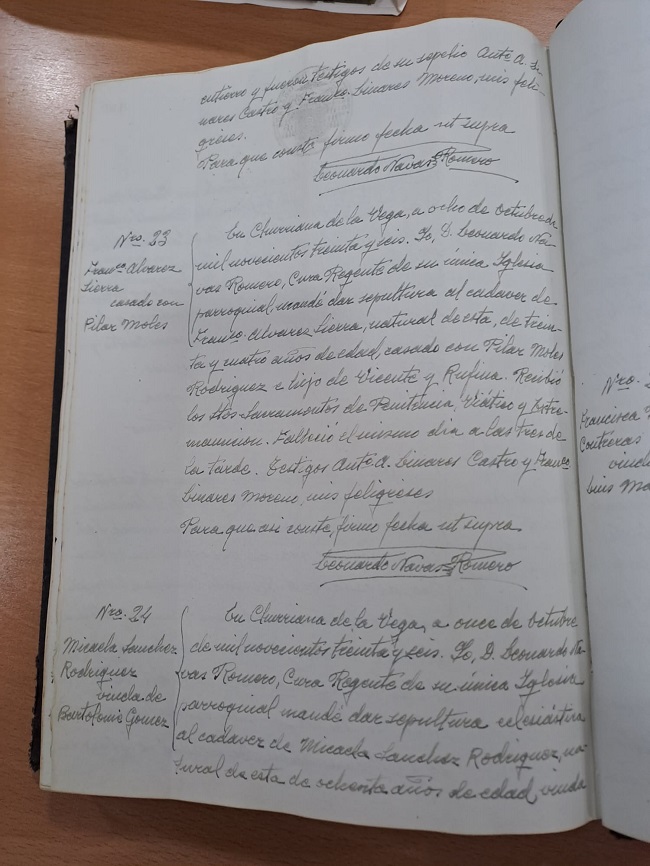 entierro y fueron testigos de su sepelio Antº A. Li-
nares Castro y Franco. Linares Moreno, mis feli-
greses.
Para que conste, firmo fecha ut supra
Leonardo Navas Romero
Nro. 23
Franco Alvarez
Sierra
casado con
Pilar Moles
En Churriana de la Vega, a ocho de Octubre de
mil novecientos treinta y seis. Yo, D. Leonardo Na-
vas Romero, Cura Regente de su única Iglesia
parroquial, mandé dar sepultura al cadaver de
Franco. Alvarez Sierra, natural de esta, de trein-
ta y cuatro años de edad, casado con Pilar Moles
Rodríguez e hijo de Vicente y Rufina. Recibió
los Stos. Sacramentos de Penitencia, Viático y Extre-
maunción. Falleció el mismo día a las tres de
la tarde. Testigos Antº A. Linares Castro y Franco
Linares Moreno, mis feligreses
Para que asi conste, firmo fecha ut supra
Leonardo Navas Romero
Nro. 24
Micaela Sanchez
Rodriguez
viuda de
Bartolomé Gomez
En Churriana de la Vega, a once de Octubre
de mil novecientos treinta y seis. Yo, D. Leonardo Na-
vas Romero, Cura Regente de su única Iglesia
parroquial mandé dar sepultura eclesiástica
al cadaver de Micaela Sanchez Rodriguez, na-
tural de esta de ochenta años de edad, viuda
Nro.
Francisca
Contreras
viuda
Luis